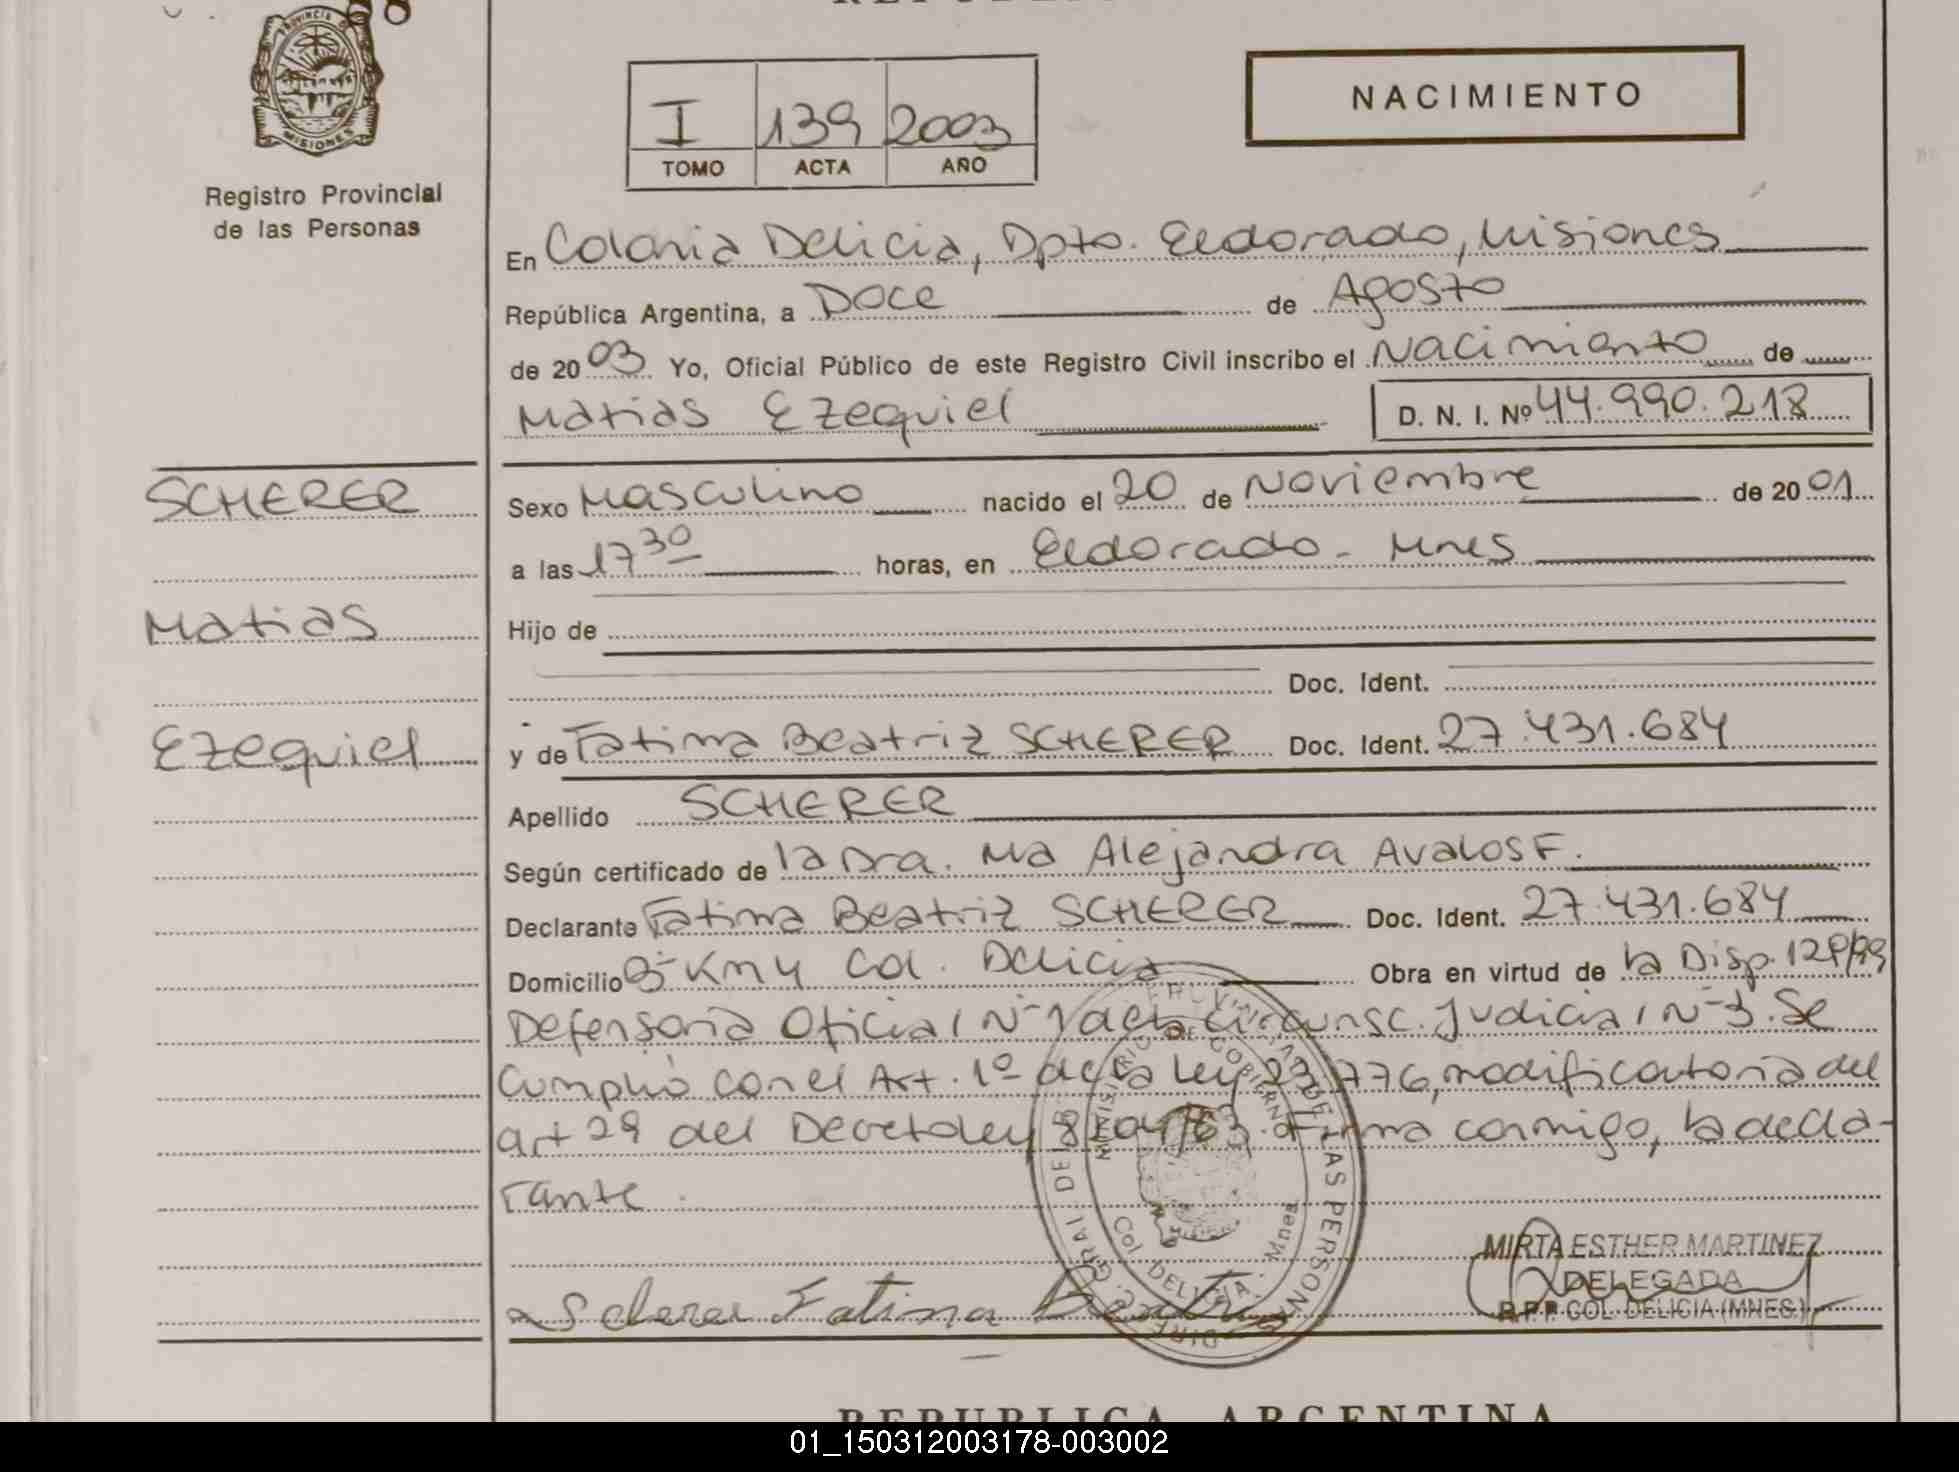 NACIMIENTO
I 139 2003
TOMO ACTA AÑO
PROVINCIA DE MISIONES
Registro Provincial
de las Personas
En Colonia Delicia, Dpto. Eldorado, Misiones
República Argentina, a Doce de Agosto
de 2003 Yo, Oficial Público de este Registro Civil inscribo el Nacimiento de
Matias Ezequiel D. N. I. Nº 44.990.218
SCHERER
Matias
Ezequiel
Sexo Masculino nacido el 20 de Noviembre de 2001
a las 17 30 horas, en Eldorado - Mnes
Hijo de
Doc. Ident.
y de Fatima Beatriz SCHERER Doc. Ident. 27.431.684
Apellido SCHERER
Según certificado de la Dra. Ma Alejandra Avalos F.
Declarante Fatima Beatriz SCHERER Doc. Ident. 27.431.684
Domicilio Km 4 Col. Delicia Obra en virtud de la Disp.
Defensoria Oficial Nº 1 de la Circunsc. Judicial Nº 3. Se
Cumplió con el Art. 1º de la Ley 23.776, modificatoria del
art 29 del Decreto Ley 8204/63. Firma conmigo, la decla-
rante.
Scherer Fatima Beatriz
MIRTA ESTHER MARTINEZ
DELEGADA
R.P.P. COL. DELICIA (MNES.)
REPUBLICA ARGENTINA
01_150312003178-003002